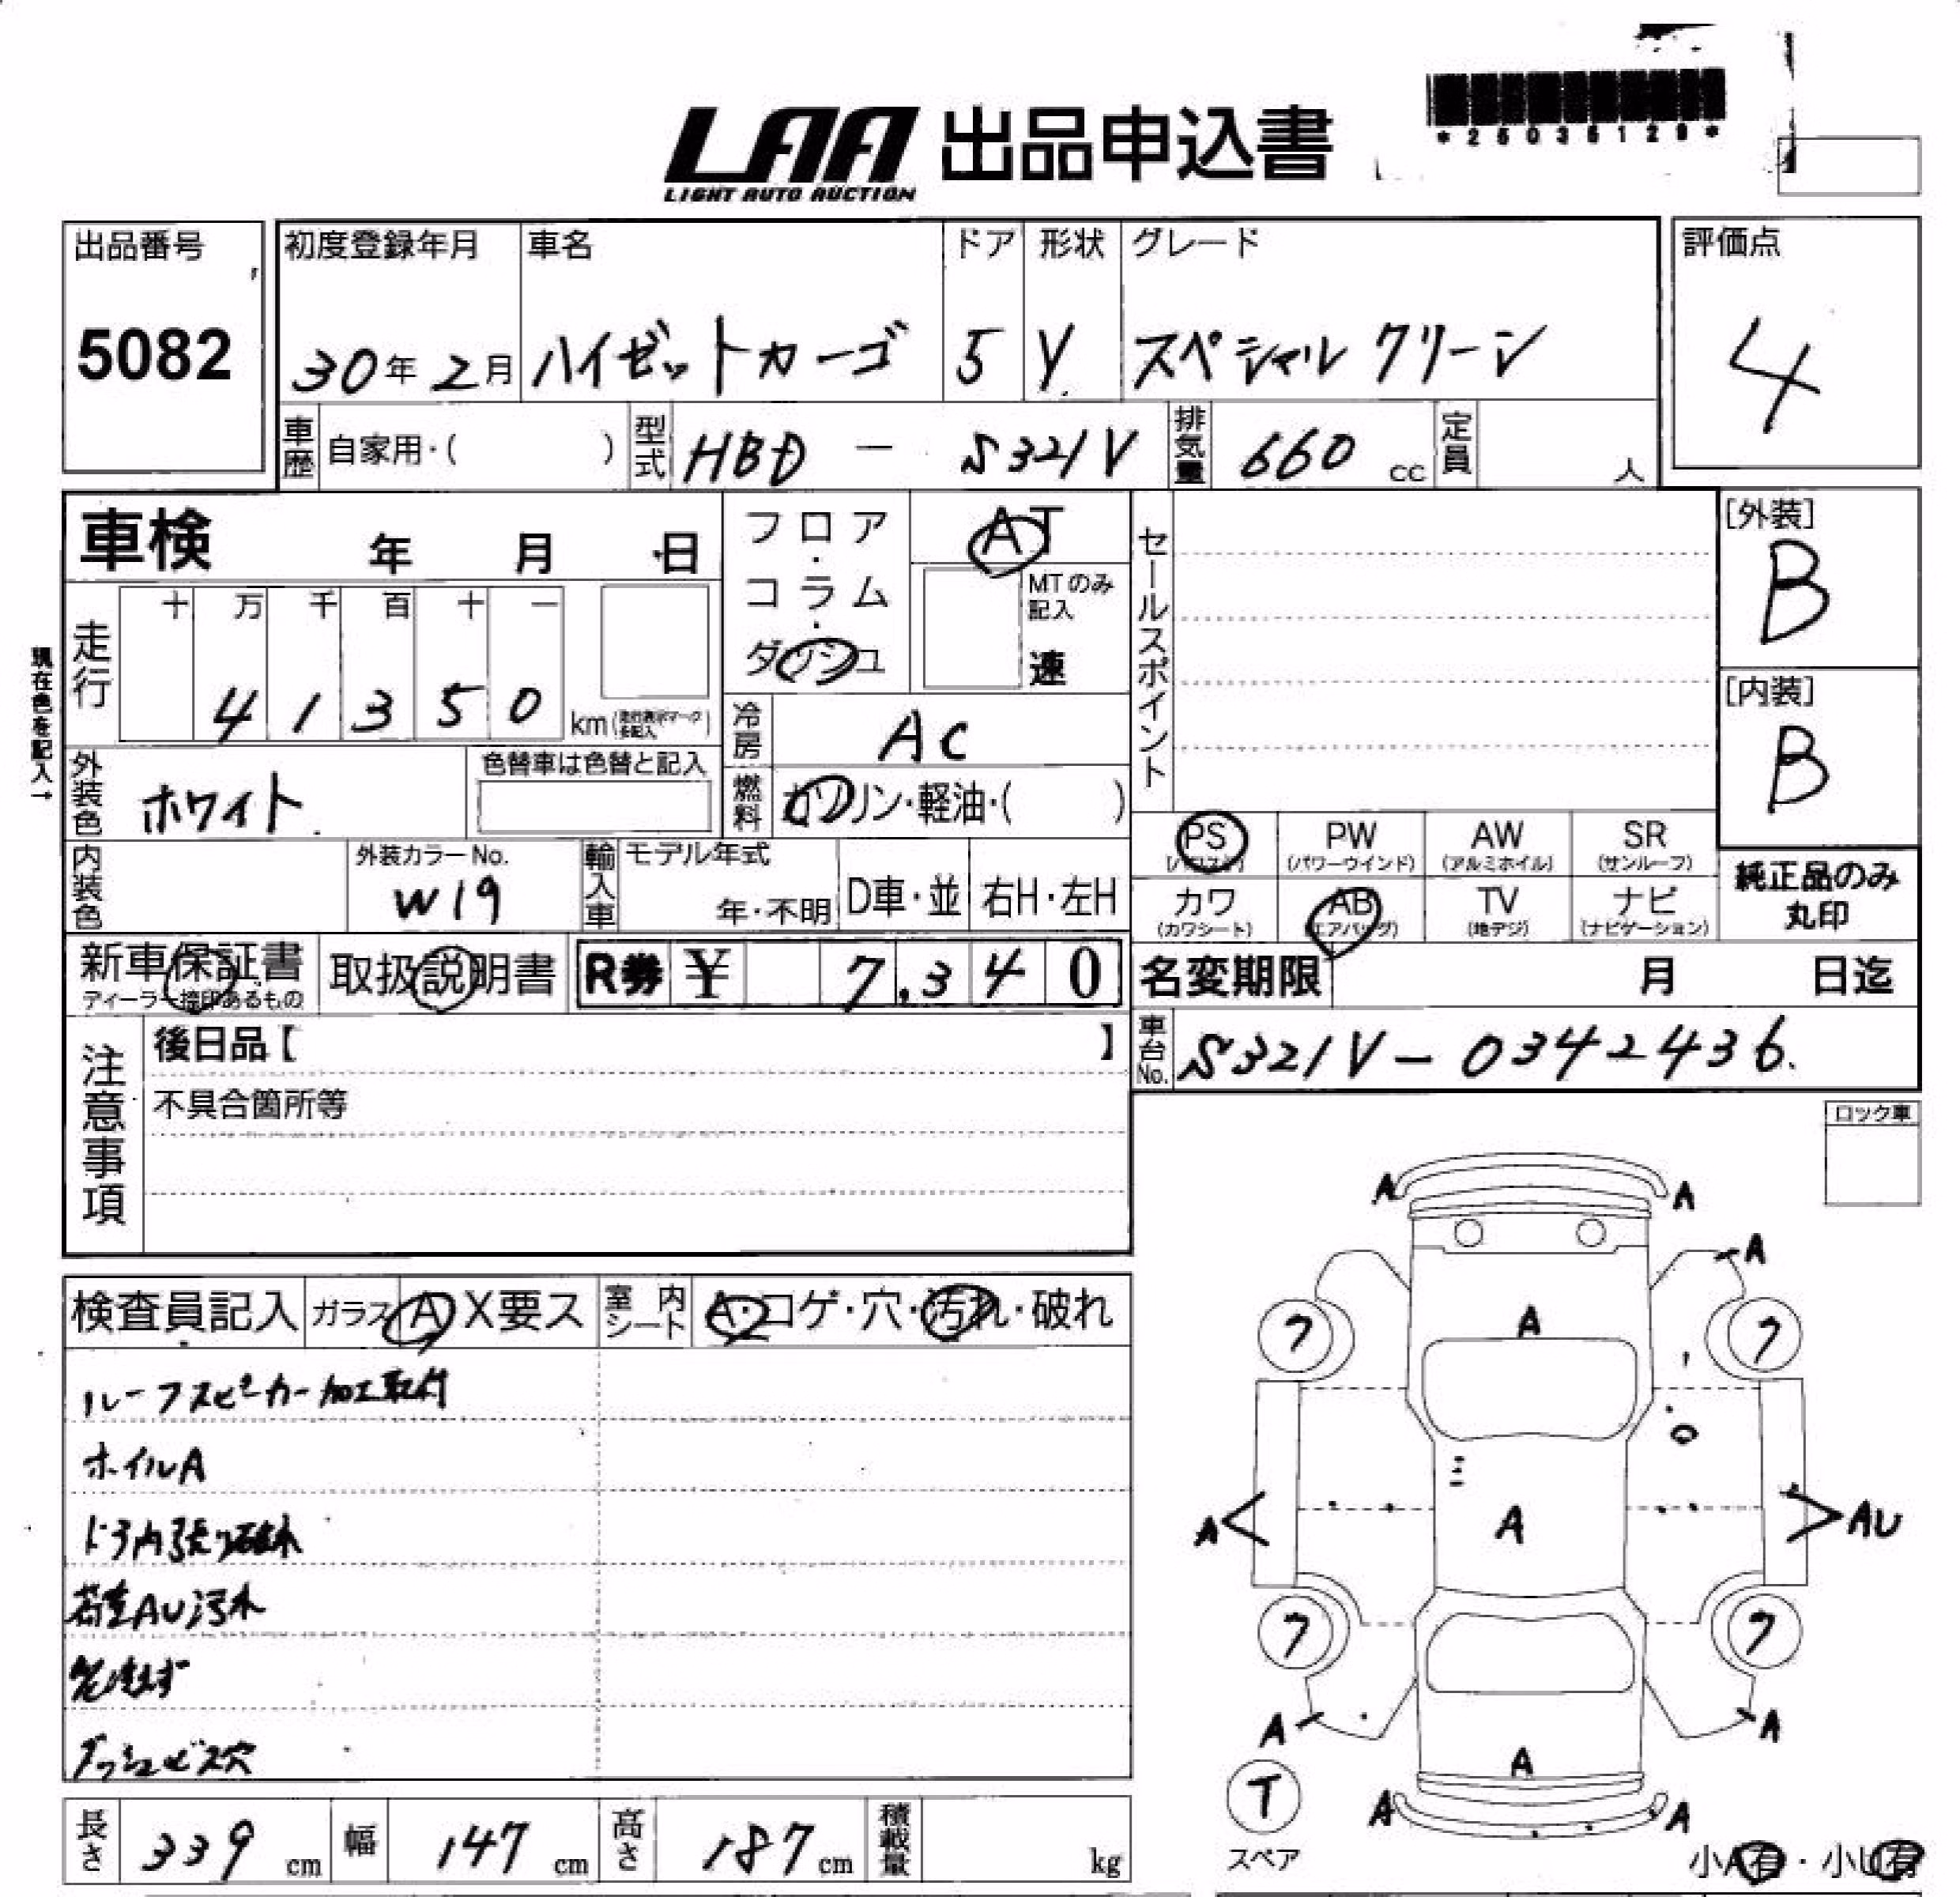 *25036129*
LAA 出品申込書
LIGHT AUTO AUCTION
出品番号 初度登録年月 車名 ドア 形状 グレード 評価点
5082 30年2月 ハイゼットカーゴ 5 V スペシャルクリーン 4
車歴 自家用・( ) 型式 HBD - S321V 排気量 660 cc 定員 人
車検 年 月 日 フロア・コラム・ダッシュ AT セールスポイント [外装]
B
十 万 千 百 十 一 MTのみ記入 速
現在色を記入→
走行 4 1 3 5 0 km [内装]
B
冷房 AC
外装色 ホワイト 色替車は色替と記入 燃料 ガソリン・軽油・( )
PS PW (パワーウインド) AW (アルミホイル) SR (サンルーフ)
内装色 外装カラーNo. W19 輸入車 モデル年式 年・不明 D車・並 右H・左H
カワ (カワシート) AB (エアバッグ) TV (地デジ) ナビ (ナビゲーション) 純正品のみ丸印
新車保証書 取扱説明書 R券 ¥ 7,340 名変期限 月 日迄
ディーラー捺印あるもの
注意事項 後日品【 】 車台No. S321V-0342436
不具合箇所等 ロック車
A A
A
検査員記入 ガラス A X要ス 室内シート A・コゲ・穴・汚れ・破れ
フ A フ
ルーフスピーカー加工取付
ホイルA
A A AU
ドア内張り破れ
荷室AU汚れ
フ フ
A A
ダッシュビス穴
A
T A A
スペア
長さ 339 cm 幅 147 cm 高さ 187 cm 積載量 kg 小A有・小U有